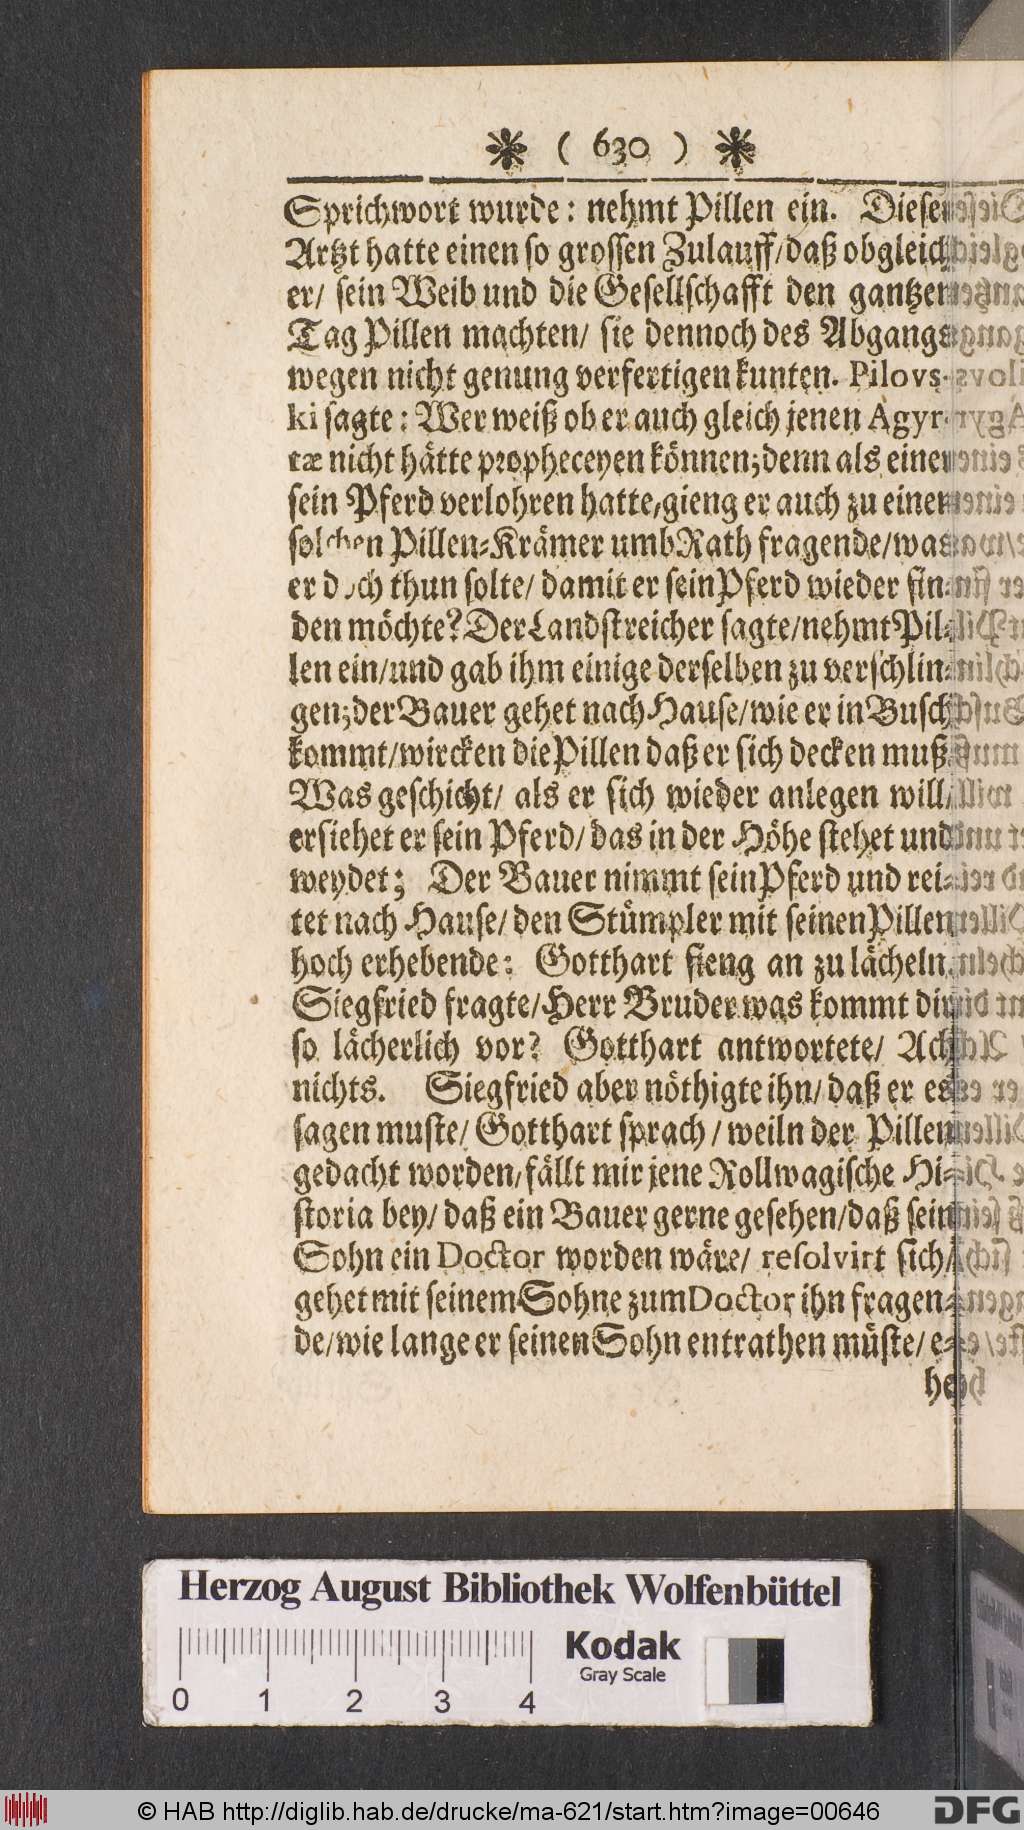 ( 630 )
Sprichwort wurde: nehmt Pillen ein. Dieser
Artzt hatte einen so grossen Zulauff/daß obgleich
er/ sein Weib und die Gesellschafft den gantzen
Tag Pillen machten/ sie dennoch des Abgangs
wegen nicht genung verfertigen kunten. Pilovs-
ki sagte: Wer weiß ob er auch gleich jenen Agyr-
tæ nicht hätte propheceyen können; denn als einer
sein Pferd verlohren hatte, gieng er auch zu einem
solchen Pillen-Krämer umb Rath fragende/was
er doch thun solte/ damit er sein Pferd wieder fin-
den möchte? Der Landstreicher sagte/nehmt Pil-
len ein/und gab ihm einige derselben zu verschlin-
gen; der Bauer gehet nach Hause/wie er in Busch
kommt/wircken die Pillen daß er sich decken muß.
Was geschicht/ als er sich wieder anlegen will/
ersiehet er sein Pferd/ das in der Höhe stehet und
weydet; Der Bauer nimmt sein Pferd und rei-
tet nach Hause/ den Stümpler mit seinen Pillen
hoch erhebende: Gotthart fieng an zu lächeln,
Siegfried fragte/Herr Bruder was kommt dir
so lächerlich vor? Gotthart antwortete/ Ach
nichts. Siegfried aber nöthigte ihn/ daß er es
sagen muste/ Gotthart sprach / weiln der Pillen
gedacht worden/ fällt mir jene Rollwagische Hi-
storia bey/ daß ein Bauer gerne gesehen/daß sein
Sohn ein Doctor worden wäre/ resolvirt sich/
gehet mit seinem Sohne zum Doctor ihn fragen-
de/wie lange er seinen Sohn entrathen müste/ e-
he
Herzog August Bibliothek Wolfenbüttel
Kodak
Gray Scale
0 1 2 3 4
© HAB http://diglib.hab.de/drucke/ma-621/start.htm?image=00646
DFG